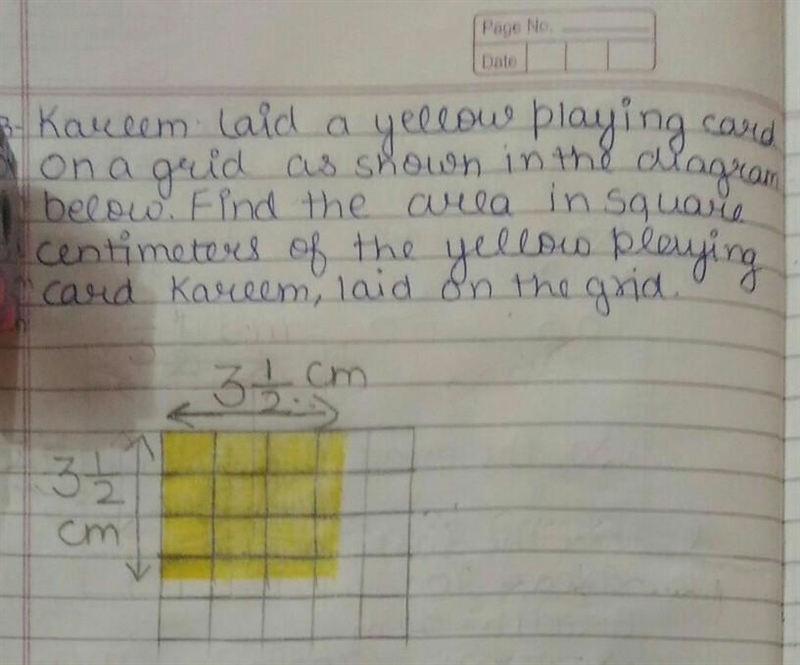 Page No.
Date
3- Kareem laid a yellow playing card
on a grid as shown in the diagram
below. Find the area in square
centimeters of the yellow pleying
card Kareem, laid on the grid.
3 1/2 cm
3 1/2
cm